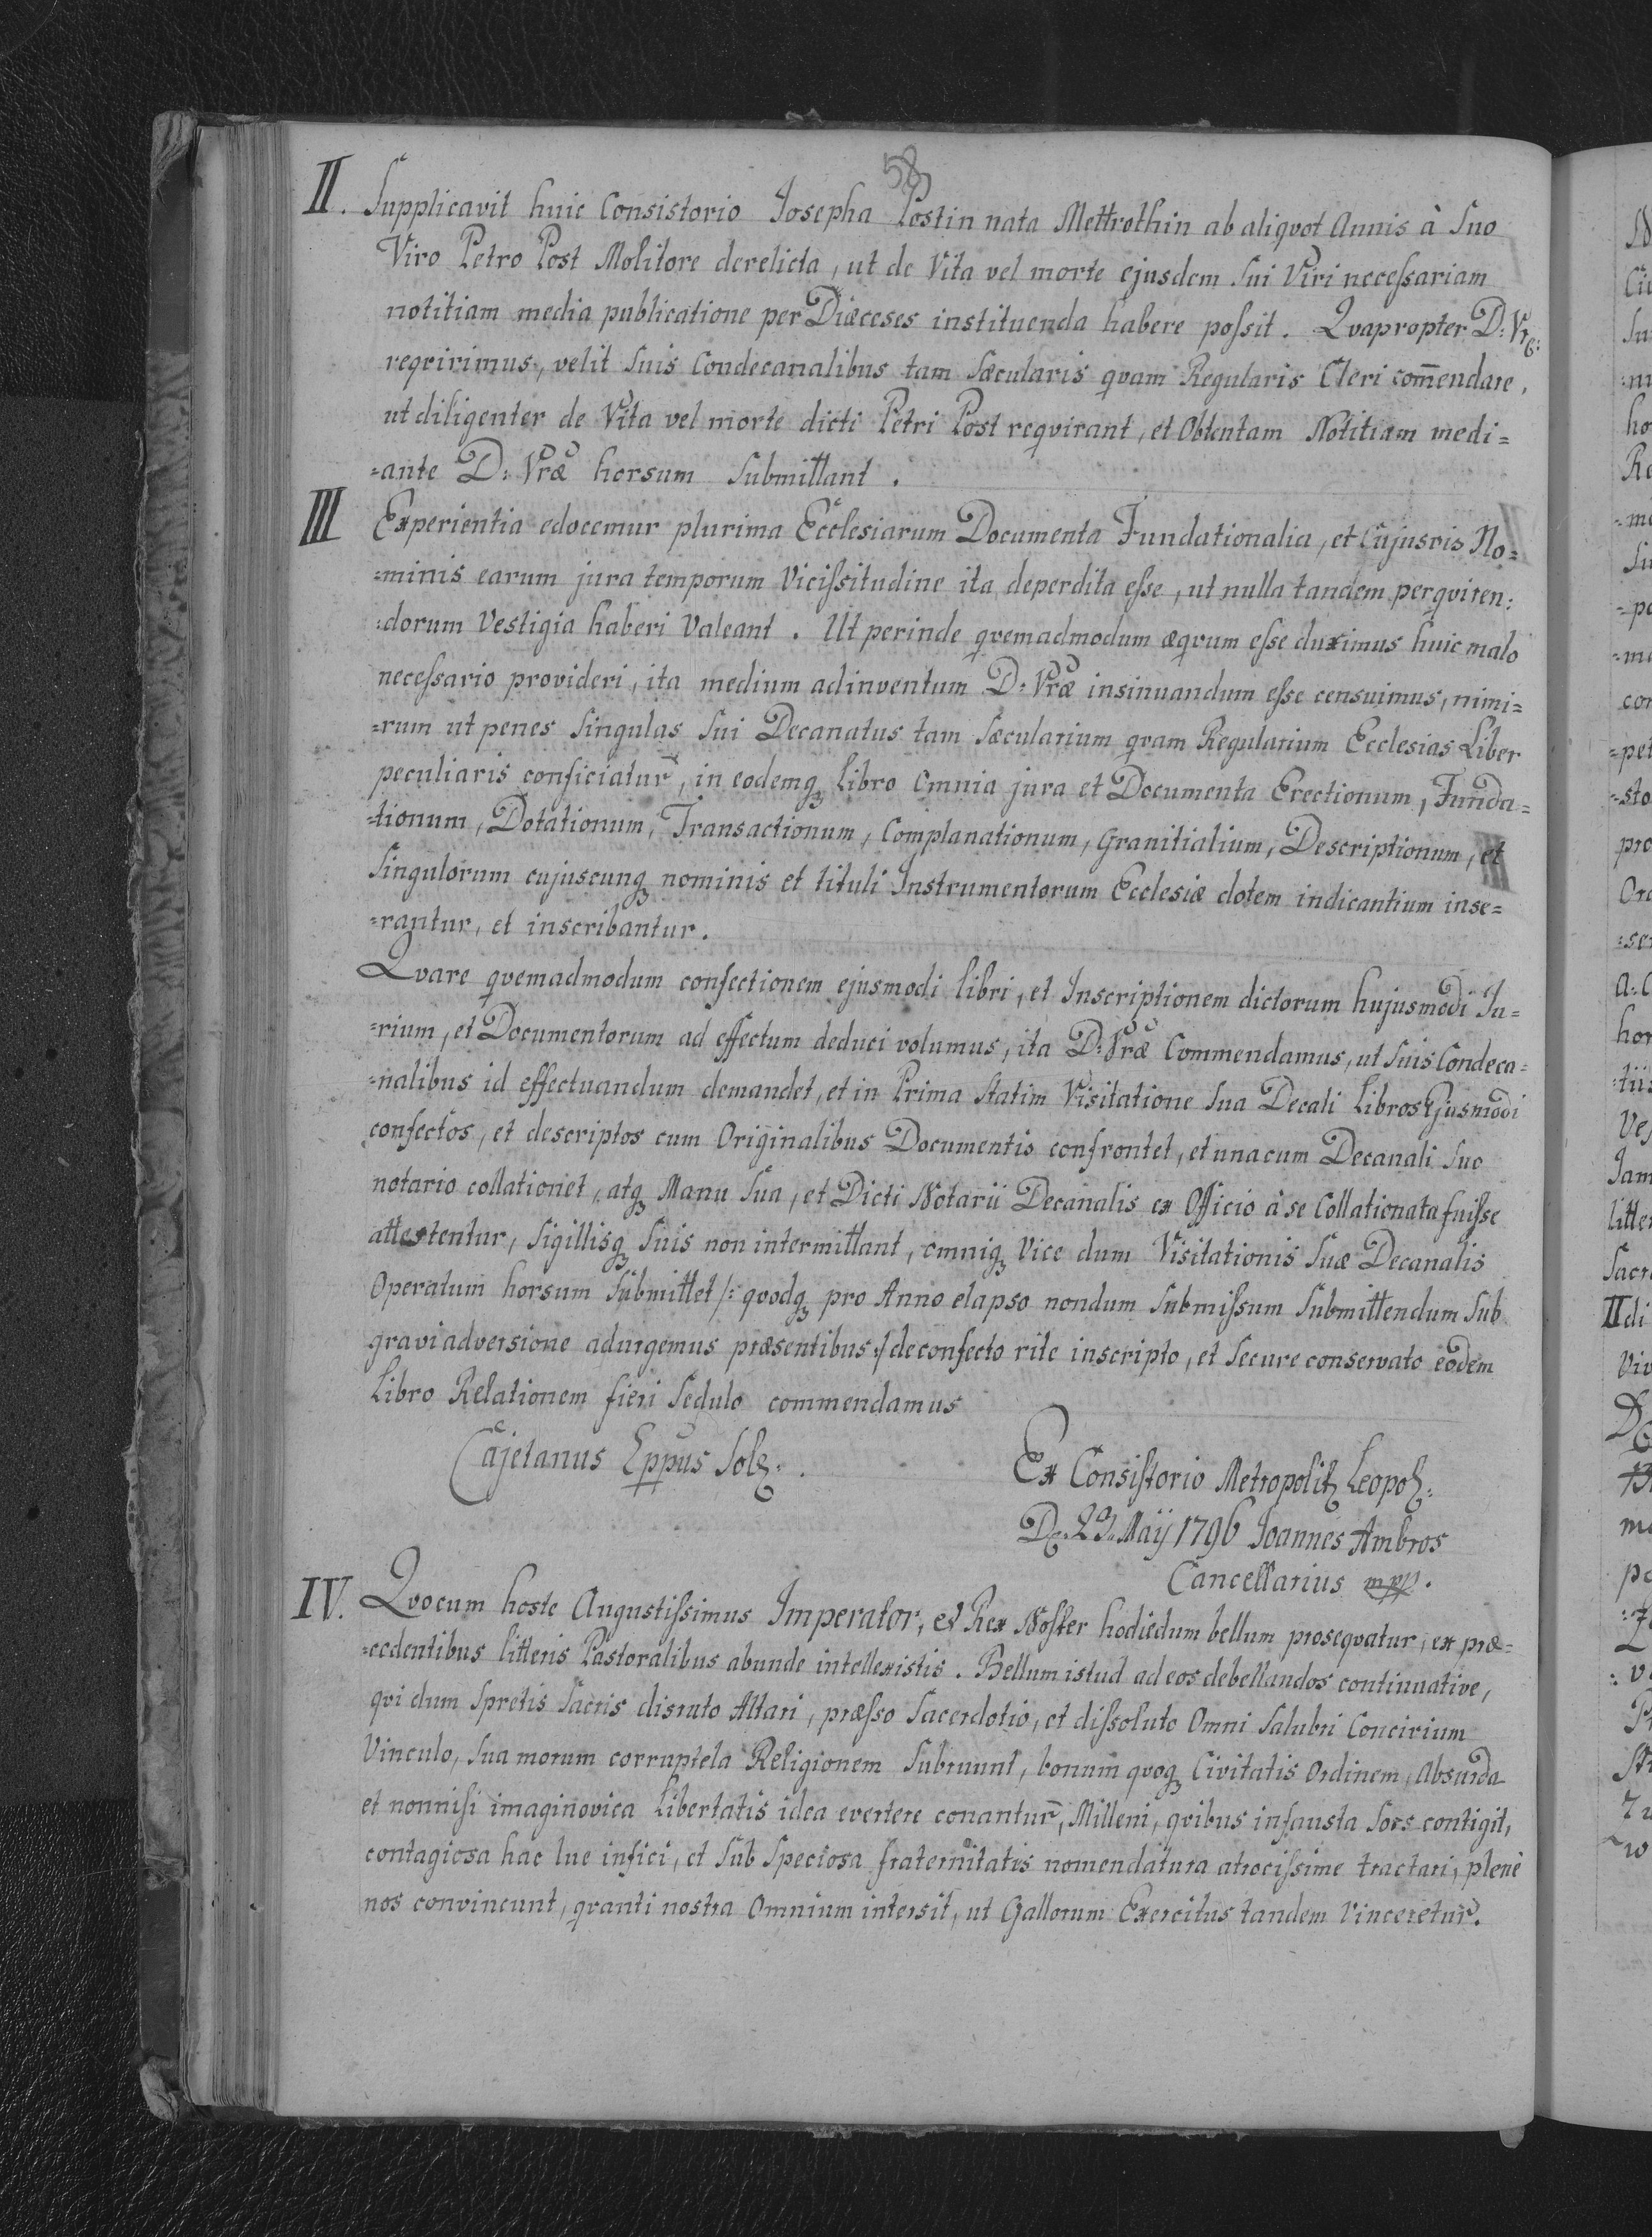 58
II. Supplicavit huic Consistorio Josepha Postin nata Mettrothin ab aliqvot Annis à Suo
Viro Petro Post Molitore derelicta, ut de Vita vel morte ejusdem Sui Viri necessariam
notitiam media publicatione per Diæceses instituenda habere possit. Qvapropter D: Vræ:
reqvirimus, velit Suis Condecanalibus tam Sæcularis qvam Regularis Cleri com̄endare,
ut diligenter de Vita vel morte dicti Petri Post reqvirant, et Obtentam Notitiam medi=
=ante D: Vræ horsum Submittant.
III Experientia edocemur plurima Ecclesiarum Documenta Fundationalia, et Cujusvis No=
=minis earum jura temporum Vicissitudine ita deperdita esse, ut nulla tandem perqviren:
:dorum Vestigia haberi Valeant. Ut perinde qvemadmodum æqvum esse duximus huic malo
necessario provideri, ita medium adinventum D: Vræ insinuandum esse censuimus, nimi=
=rum ut penes Singulas Sui Decanatus tam Sæcularium qvam Regularium Ecclesias Liber
peculiaris conficiatur, in eodemq Libro Omnia jura et Documenta Erectionum, Funda=
=tionum, Dotationum, Transactionum, Complanationum, Granitialium, Descriptionum, et
Singulorum cujuscunq nominis et tituli Instrumentorum Ecclesiæ dotem indicantium inse=
=rantur, et inscribantur.
Qvare qvemadmodum confectionem ejusmodi libri, et Inscriptionem dictorum hujusmodi Ju=
=rium, et Documentorum ad effectum deduci volumus, ita D: Vræ Commendamus, ut Suis Condeca=
=nalibus id effectuandum demandet, et in Prima Statim Visitatione Sua Decali Libros Ejusmodi
confectos, et descriptos cum Originalibus Documentis confrontet, et unacum Decanali Suo
notario collationet, atq Manu Sua, et Dicti Notarii Decanalis ex Officio à se Collationata fuisse
attestentur, Sigillisq Suis non intermittant, omniq Vice dum Visitationis Suæ Decanalis
Operatum horsum Submittet /: qvodq pro Anno elapso nondum Submissum Submittendum Sub
gravi adversione adurgemus præsentibus :/ de confecto rite inscripto, et Secure conservato eodem
Libro Relationem fieri Sedulo commendamus
Cajetanus Eppus Solz.
Ex Consistorio Metropolitz Leopolz:
De 23 Maij 1796 Joannes Ambros
Cancellarius mpp.
IV. Qvocum hoste Augustissimus Imperator, et Rex Noster hodiedum bellum proseqvatur, ex præ=
=cedentibus litteris Pastoralibus abunde intellexistis. Bellum istud ad eos debellandos continuative,
qvi dum Spretis Sacris disruto Altari, præsso Sacerdotio, et dissoluto Omni Salubri Concivium
Vinculo, Sua morum corruptela Religionem Subruunt, bonum qvoq Civitatis Ordinem, Absurda
et nonnisi imaginovica Libertatis idea evertere conantur, Milleni, qvibus infausta Sors contigit,
contagiosa hac lue infici, et Sub Speciosa fraternitatis nomendatura atrocissime tractari, plenè
nos convincunt, qvanti nostra Omnium intersit, ut Gallorum Exercitus tandem Vinceretur.